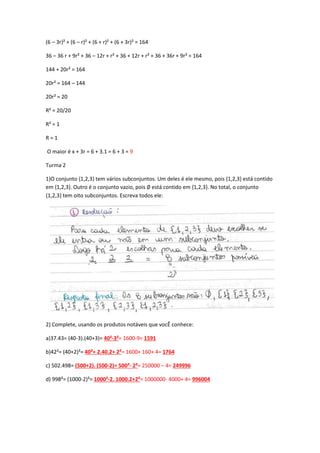 (6 – 3r)² + (6 – r)² + (6 + r)² + (6 + 3r)² = 164
36 – 36 r + 9r² + 36 – 12r + r² + 36 + 12r + r² + 36 + 36r + 9r² = 164
144 + 20r² = 164
20r² = 164 – 144
20r² = 20
R² = 20/20
R² = 1
R = 1
O maior é x + 3r = 6 + 3.1 = 6 + 3 = 9
Turma 2
1)O conjunto {1,2,3} tem vários subconjuntos. Um deles é ele mesmo, pois {1,2,3} está contido
em {1,2,3}. Outro é o conjunto vazio, pois Ø está contido em {1,2,3}. No total, o conjunto
{1,2,3} tem oito subconjuntos. Escreva todos ele:
① Resolução:
Para cada elemento de {1,2,3} deve escolher se
ele entra ou não em um subconjunto.
Logo há 2 escolhas para cada elemento.
2 2 2 = 8 subconjuntos possíveis
2³
Resposta final: Os 8 subconjuntos são: Ø, {1} {2} {3},
{1,2}, {1,3}, {2,3}, {1,2,3}
2) Complete, usando os produtos notáveis que você conhece:
a)37.43= (40-3).(40+3)= 40²-3²= 1600-9= 1591
b)42²= (40+2)²= 40²+ 2.40.2+ 2²= 1600+ 160+ 4= 1764
c) 502.498= (500+2). (500-2)= 500²- 2²= 250000 – 4= 249996
d) 998²= (1000-2)²= 1000²-2. 1000.2+2²= 1000000- 4000+ 4= 996004